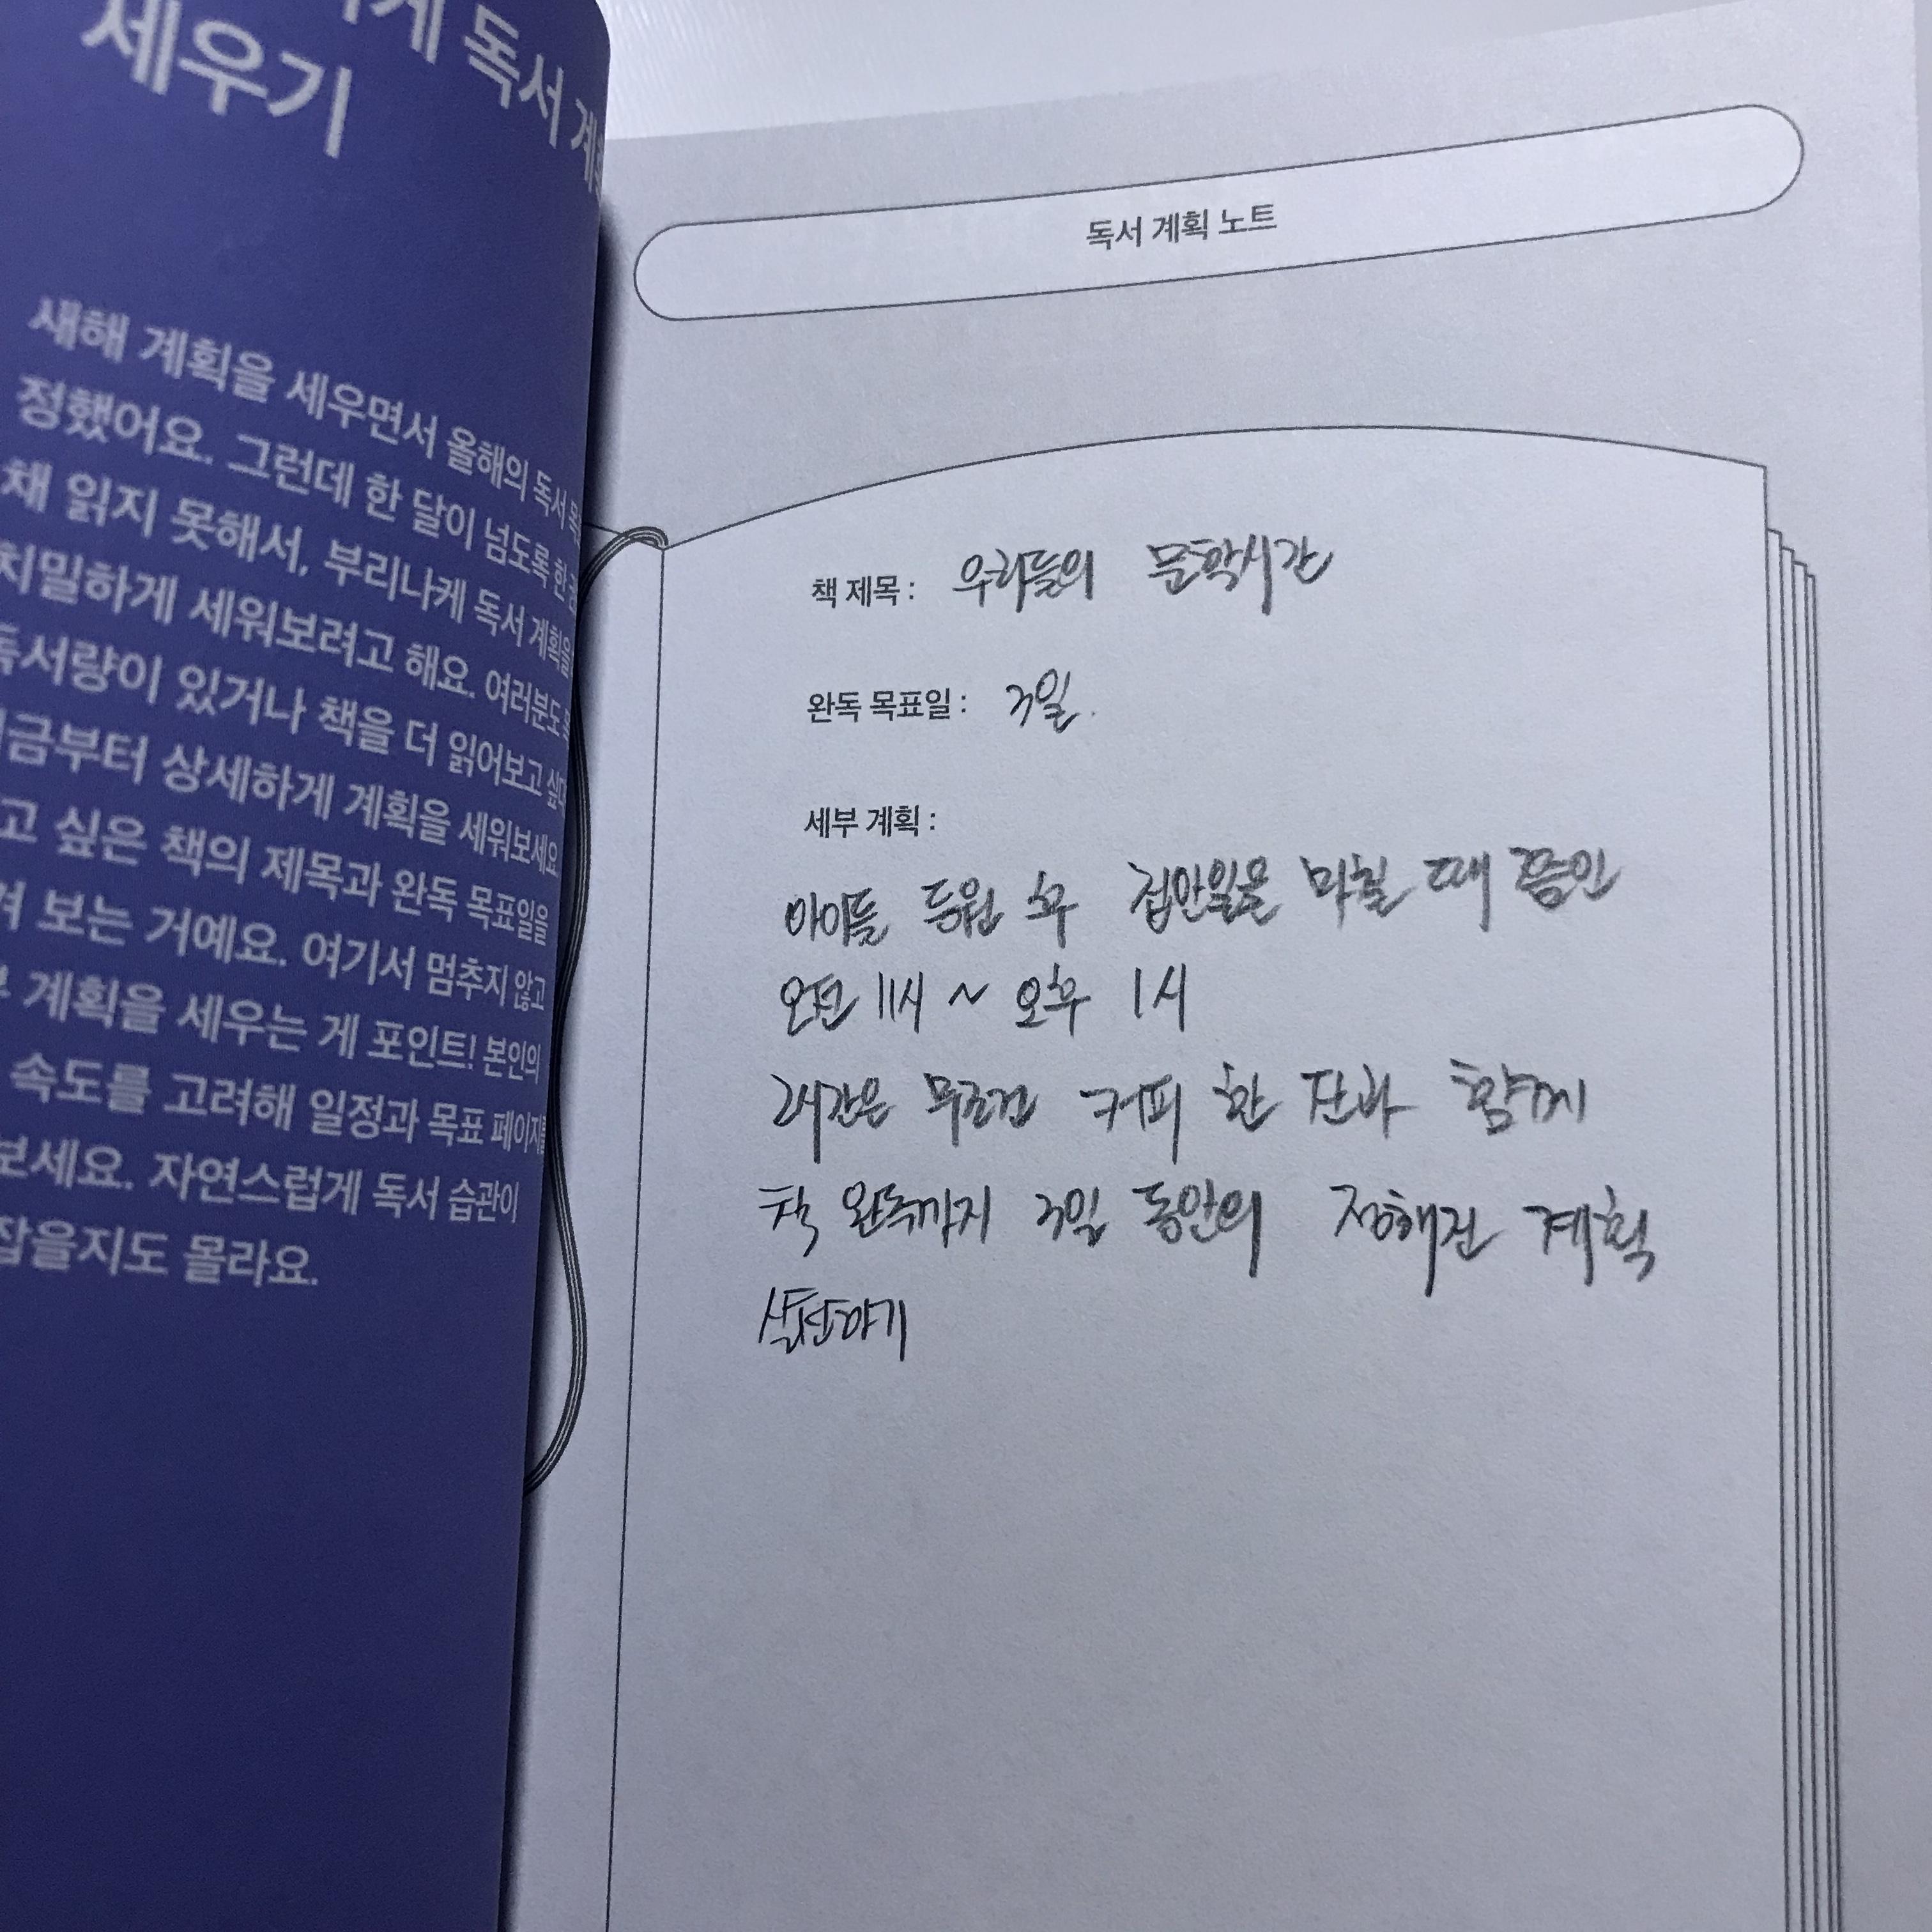 게 독서 계획
세우기
새해 계획을 세우면서 올해의 독서 목
정했어요. 그런데 한 달이 넘도록 한 권
채 읽지 못해서, 부리나케 독서 계획을
치밀하게 세워보려고 해요. 여러분도 목
독서량이 있거나 책을 더 읽어보고 싶다
지금부터 상세하게 계획을 세워보세요
고 싶은 책의 제목과 완독 목표일을
겨 보는 거예요. 여기서 멈추지 않고
부 계획을 세우는 게 포인트! 본인의
속도를 고려해 일정과 목표 페이지를
보세요. 자연스럽게 독서 습관이
잡을지도 몰라요.
독서 계획 노트
책 제목 : 우리들의 문학시간
완독 목표일 : 3일.
세부 계획 :
아이들 등원 후 집안일을 마칠 때 쯤인
오전 11시 ~ 오후 1시
2시간은 무조건 커피 한 잔과 함께
책 완독까지 3일 동안의 정해진 계획
실천하기